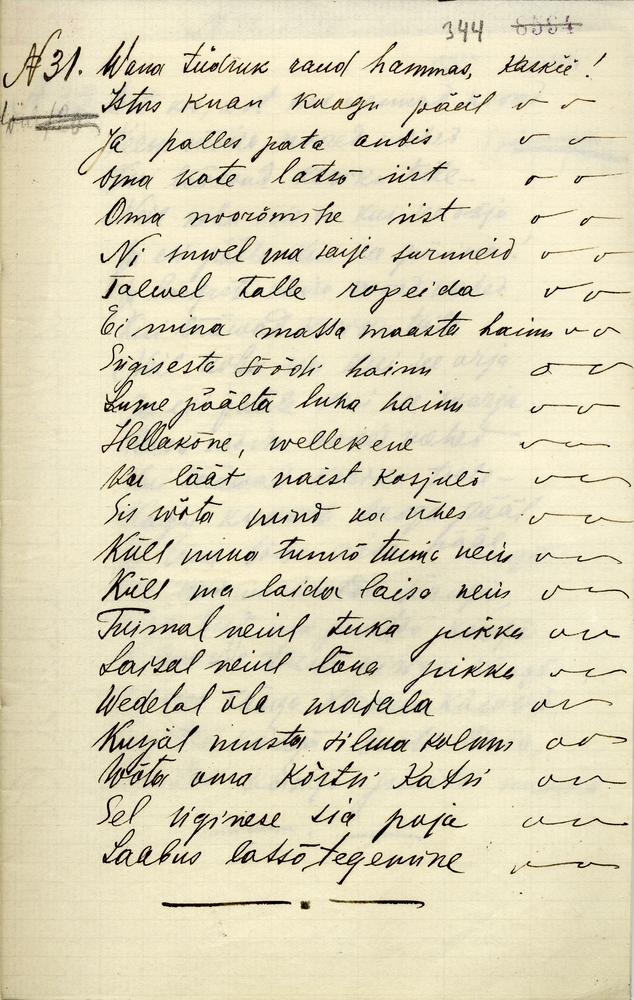 344
№ 31. Wana tüdruk raud hammas, kaskiè!
Istus kuan kaagu pääl
Ja palles pata andis
Oma kate latsõ iist
Oma noorõmihe iist
Ni suwel ma saije suruneid
Talwel talle ropeida
Ei mina massa maasta hainu
Sügisesta söödi hainu
Lume päälta luha hainu
Hellakõne, wellekene
Ku läät naist kosjulõ
Sis wõta mind ka ühes
Küll mina tunnõ tuima neiu
Küll ma laida laisa neiu
Tuimal neiul tuka pikka
Laisal neiul lõua pikka
Wedelal õla madala
Kurjal musta silma kolmu
Wõta oma Kõrtsi Katsi
Sel siginese sia poja
Laabus latsõtegemine